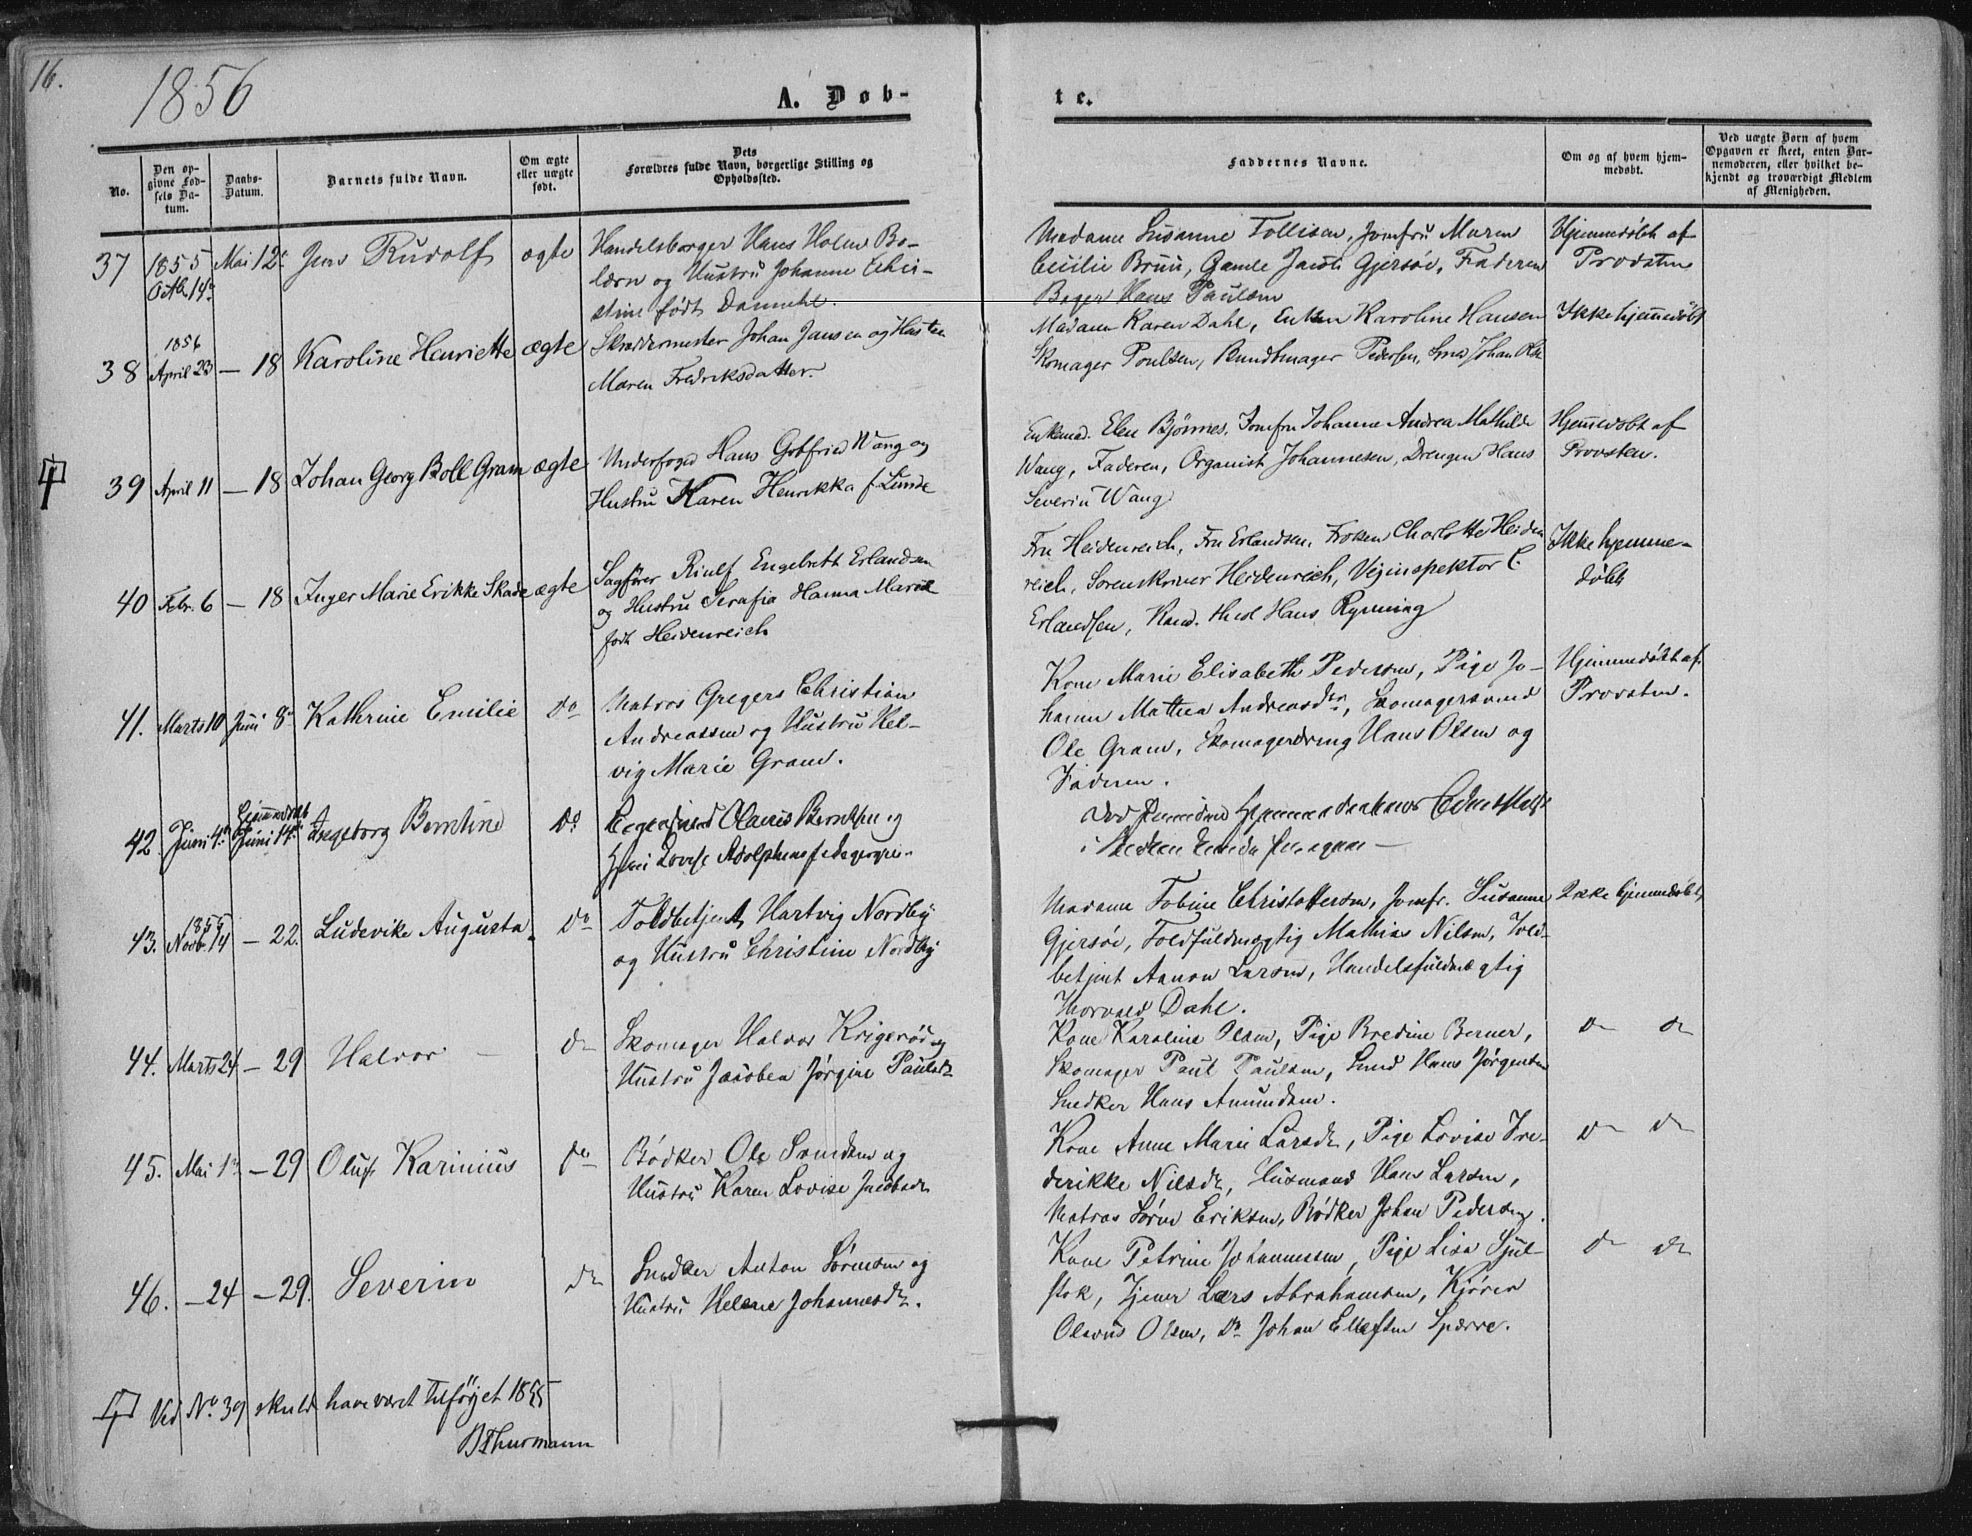 16.
1856
A. Døb-
te.
No.
Den op-
givne Fød-
sels Da-
tum.
Daabs-
Datum.
Barnets fulde Navn.
Om ægte
eller uægte
født.
Dets
Forældres fulde Navn, borgerlige Stilling og
Opholdssted.
Faddernes Navne.
Om og af hvem hjem-
medøbt.
Ved uægte Børn af hvem
Opgaven er skeet, enten Bar-
nemoderen, eller hvilket be-
kjendt og troværdigt Medlem
af Menigheden.
37
1855
Octbr 14de
Mai 12te
Jens Rudolf
ægte
Handelsborger Hans Holm Bo-
lærn og Hustru Johanne Chri-
stine født Dannehl.
Madame Susanne Tollisen, Jomfru Maren
Cecilie Bruu, Gamle Jacob Gjersøe, Faderen
Bager Hans Paulsen
Hjemmedøbt af
Provsten
38
1856
April 23
— 18
Karoline Henriette
ægte
Skræddermester Johan Jansen og Hustru
Maren Fredriksdatter.
Madame Karen Dahl, Enken Karoline Hansen
Skomager Poulsen, Bundtmager Pedersen, Smed Johan
Ikke hjemmedøbt
39
April 11
— 18
Johan Georg Boll Gram
ægte
Underfoged Hans Gotfried Wang og
Hustru Karen Henrikka f. Lunde
Enkemad. Elen Bjørnes, Jomfru Johanne Andrea Mathilde
Wang, Faderen, Organist Johannesen, Drengen Hans
Severin Wang
Hjemmedøbt af
Provsten.
40
Febr. 6
— 18
Inger Marie Erikke Skade
ægte
Sagfører Riulf Engebrett Erlandsen
og Hustru Serafia Hanna Marie
født Heidenreich
Fru Heidenreich, Fru Erlandsen, Frøken Charlotte Heiden
reich, Sorenskriver Heidenreich, Veiinspektor C.
Erlandsen, Kand. theol Hans Rynning
Ikke hjemme-
døbt
41.
Marts 10
Juni 8de
Kathrine Emilie
do
Matros Gregers Christian
Andreassen og Hustru Hel-
vig Marie Gram.
Kone Marie Elisabeth Pedersen, Pige Jo-
hanne Mathea Andreasdtr, Skomagersvend
Ole Gram, Skomagerdreng Hans Olsen og
Faderen.
Hjemmedøbt af
Provsten.
42
Juni 4de
Hjemmedøbt
Juni 14de
Ingeborg Berntine
do
Olaus Berntsen og
Lovise Adolphine
43.
1855
Novbr. 14
— 22.
Ludevike Augusta
do
Toldbetjent Hartvig Nordby
og Hustru Christine Nordby
Madame Tobine Christoffersen, Jomfr. Susanne
Gjersøe, Toldfuldmægtig Mathias Nilsen, Told-
betjent Aanon Larsen, Handelsfuldmægtig
Thorvald Dahl.
Ikke hjemmedøbt
44.
Marts 24
— 29
Halvor
do
Skomager Halvor Krigerød og
Hustru Jacobea Jørgine Paulsdtr
Kone Karoline Olsen, Pige Bredine Berner,
Skomager Paul Paulsen, Smed Hans Jørgensen
Snedker Hans Amundsen.
do do
45.
Mai 1ste
— 29
Oluf Karinius
do
Bødker Ole Svendsen og
Hustru Karen Lovise Jacobsdtr
Kone Anne Marie Larsdtr, Pige Lovise Fre-
derikke Nilsdtr, Husmand Hans Larsen,
Matros Søren Eriksen, Bødker Johan Pedersen.
do do
46.
— 24
— 29.
Severin
do
Snedker Anton Sørensen og
Hustru Helene Johannesdtr.
Kone Petrine Johannesen, Pige Lisa Sjul-
stok, Tjener Lars Abrahamsen, Kjører
Olavus Olsen, do Johan Ellefsen Spærre.
do do
Ved No. 39 skuld have været tilføjet 1855
B Thurmann